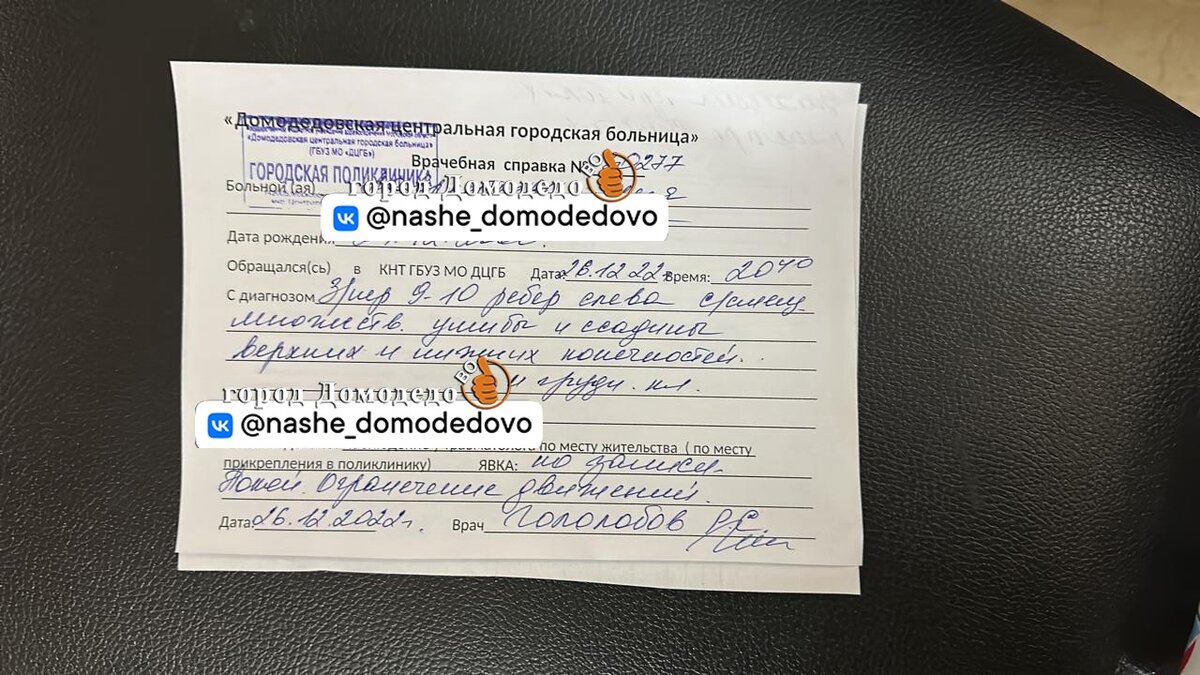 «Домодедовская центральная городская больница»
«Домодедовская центральная городская больница»
(ГБУЗ МО «ДЦГБ»)
ГОРОДСКАЯ ПОЛИКЛИНИКА
Врачебная справка №
277
ВО
Больной (ая)
город Домодедо
@nashe_domodedovo
Дата рождения
Обращался(сь) в КНТ ГБУЗ МО ДЦГБ Дата: 26.12.22 время: 20 40
С диагнозом 9-10 ребер слева
множеств. ушибы и ссадины
верхних и нижних конечностей.
и груди. кл.
ВО
город Домодедо
@nashe_domodedovo
по месту жительства ( по месту
прикрепления в поликлинику) ЯВКА: по записи.
Покой. Ограничение движений.
Дата: 26.12.2022г. Врач Гололобов